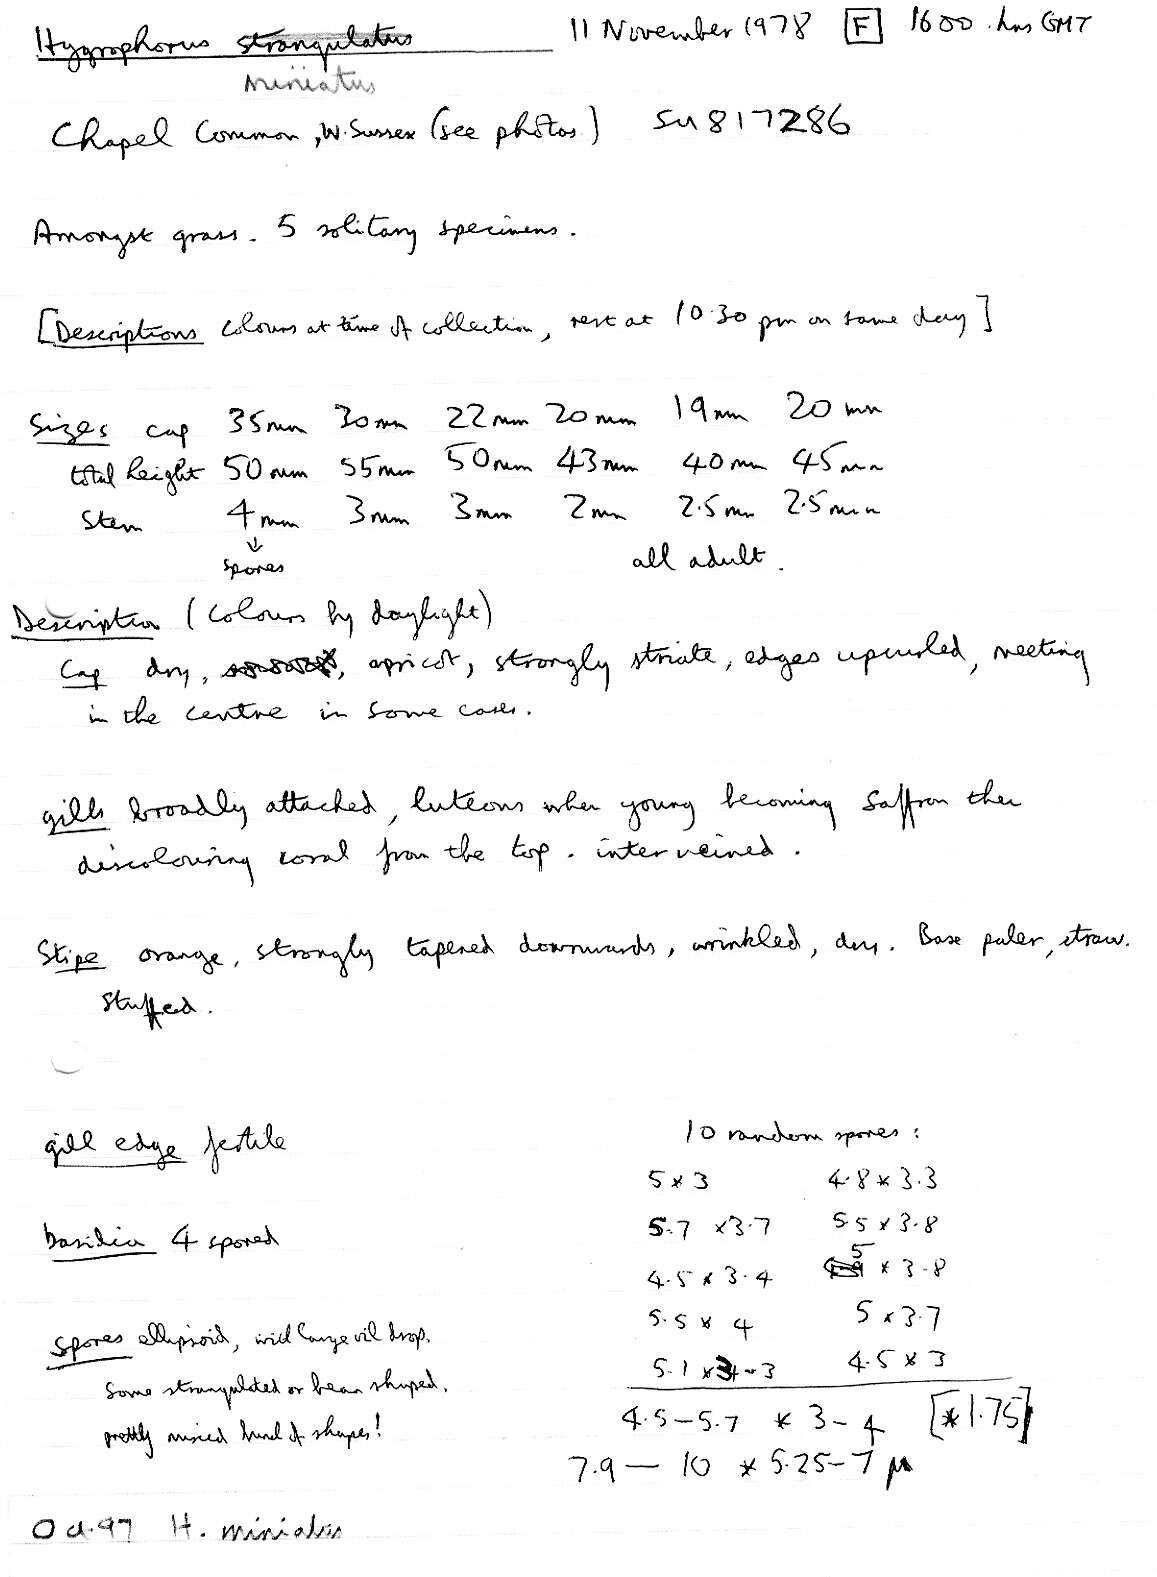 Hygrophorus strangulatus 11 November 1978 F 1600 hrs GMT
miniatus
Chapel Common, W. Sussex (see photos) SU817286
Amongst grass. 5 solitary specimens.
[Descriptions colours at time of collection, rest at 10.30 pm on same day]
Sizes cap 35mm 30mm 22mm 20mm 19mm 20mm
total height 50mm 55mm 50mm 43mm 40mm 45mm
Stem 4mm 3mm 3mm 2mm 2.5mm 2.5mm
↓
spores all adult.
Description (colours by daylight)
Cap dry, , apricot, strongly striate, edges upcurled, meeting
in the centre in some cases.
gills broadly attached, luteous when young becoming saffron then
discolouring coral from the top. interveined.
Stipe orange, strongly tapered downwards, wrinkled, dry. Base paler, straw.
Stuffed.
gill edge fertile
10 random spores:
5 * 3 4.8 * 3.3
5.7 * 3.7 5.5 * 3.8
basidia 4 spored
4.5 * 3.4 5 * 3.8
5.5 * 4 5 * 3.7
spores ellipsoid, with large oil drop.
5.1 * 3.3 4.5 * 3
Some strangulated or bean shaped.
4.5-5.7 * 3-4 [*1.75]
pretty mixed bund of shapes!
7.9 — 10 * 5.25-7 μ
Oct. 97 H. miniatus